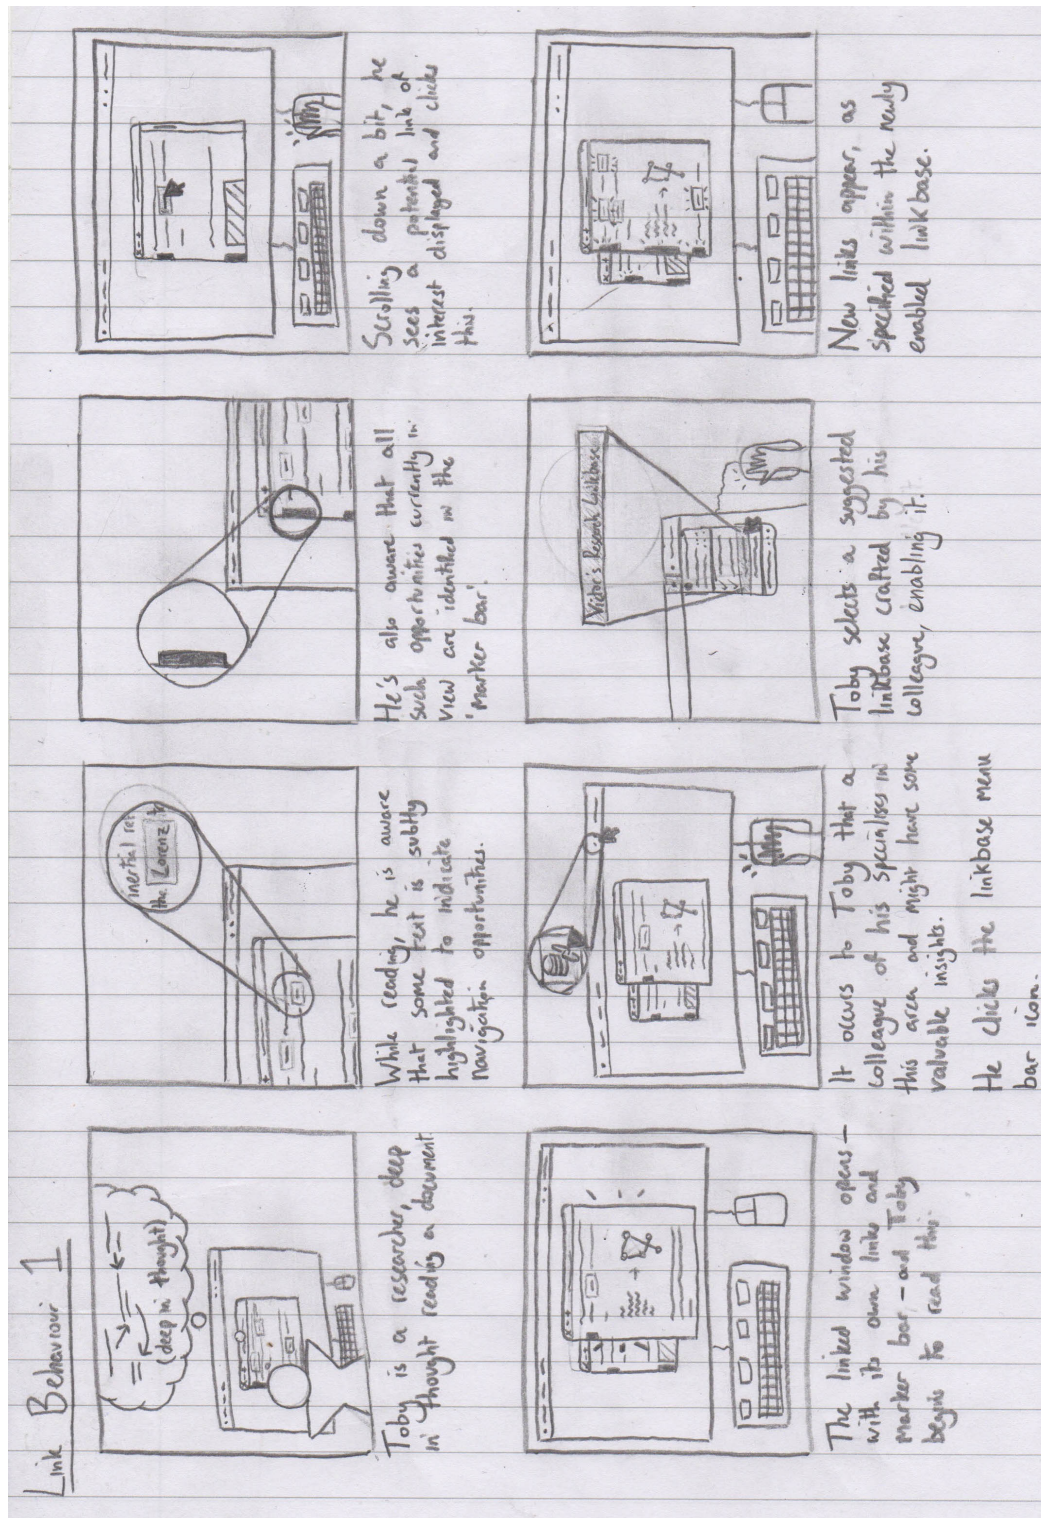 Link Behaviour 1
(deep in thought)
Toby is a researcher, deep
in thought reading a document
inertial re
the Lorenz
While reading, he is aware
that some text is subtly
highlighted to indicate
navigation opportunities.
He's also aware that all
such opportunities currently in
view are identified in the
'marker bar'.
Scrolling down a bit, he
sees a potential link of
interest displayed and clicks
this.
The linked window opens –
with its own links and
marker bar – and Toby
begins to read this.
It occurs to Toby that a
colleague of his specialises in
this area and might have some
valuable insights.
He clicks the linkbase menu
bar icon.
Victor's Research Linkbase
Toby selects a suggested
linkbase crafted by his
colleague, enabling it.
New links appear, as
specified within the newly
enabled linkbase.